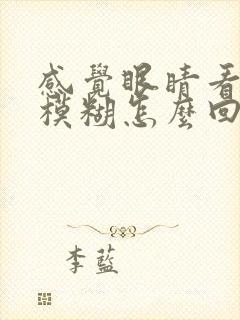 感覺眼睛看
模糊怎麼回
李藍